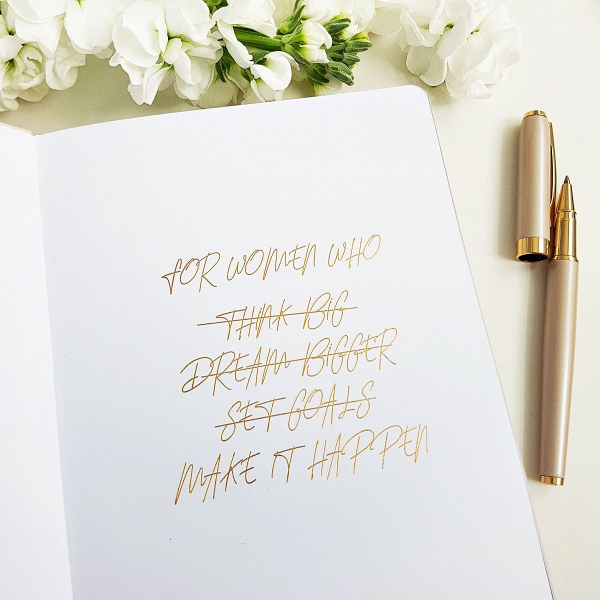 FOR WOMEN WHO
THINK BIG
DREAM BIGGER
SET GOALS
MAKE IT HAPPEN